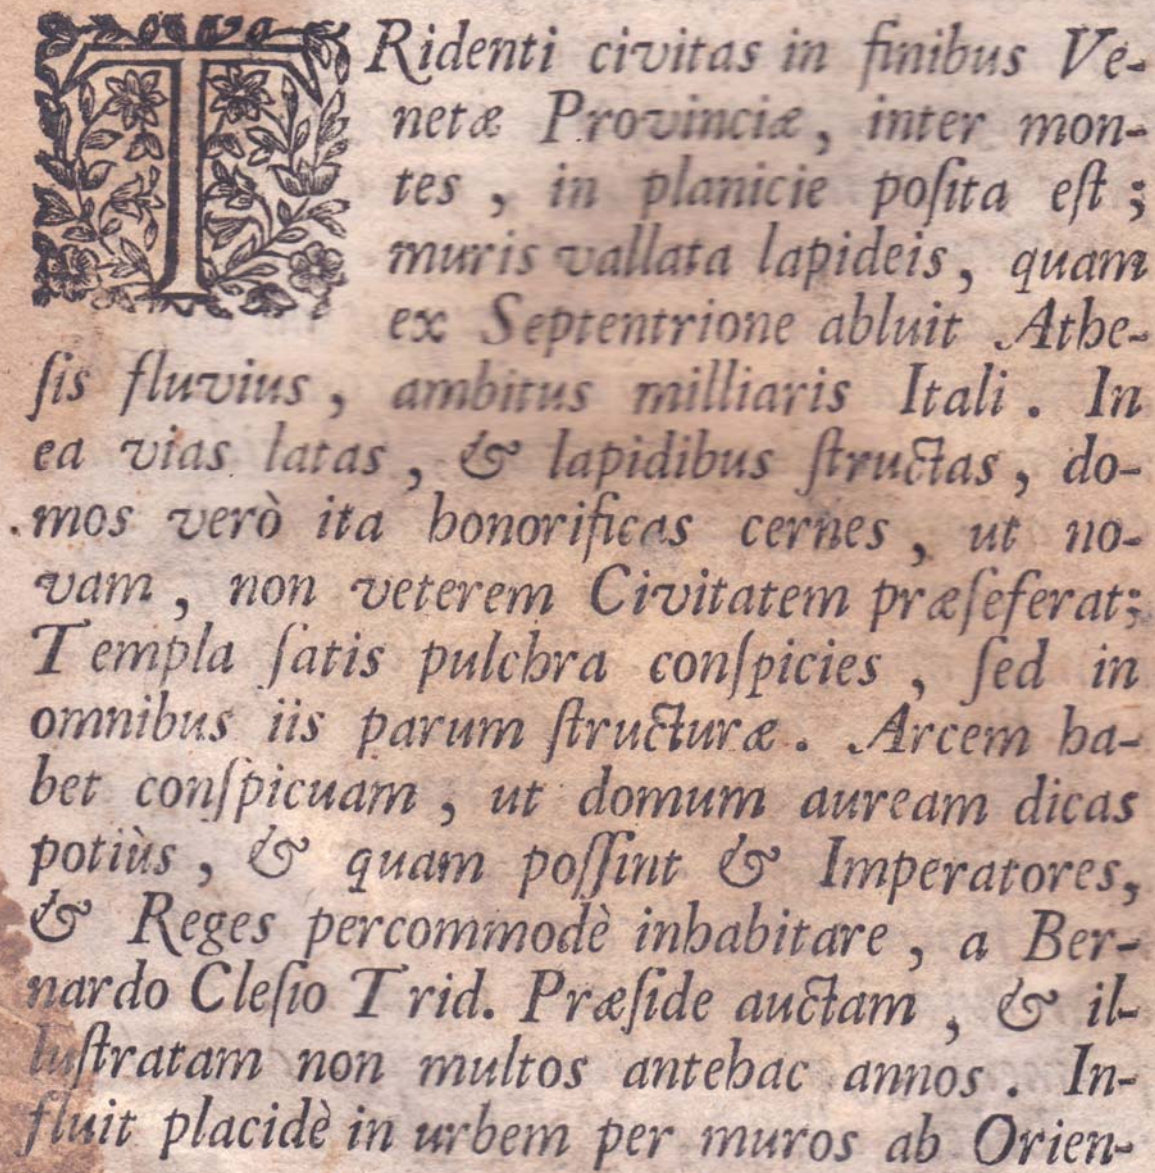 TRidenti civitas in finibus Ve-
netæ Provinciæ, inter mon-
tes, in planicie poſita eſt;
muris vallata lapideis, quam
ex Septentrione abluit Athe-
ſis fluvius, ambitus milliaris Itali. In
ea vias latas, & lapidibus ſtructas, do-
mos verò ita honorificas cernes, ut no-
vam, non veterem Civitatem præſeferat;
Templa ſatis pulchra conſpicies, ſed in
omnibus iis parum ſtructuræ. Arcem ha-
bet conſpicuam, ut domum auream dicas
potiùs, & quam poſſint & Imperatores,
& Reges percommodè inhabitare, a Ber-
nardo Cleſio Trid. Præſide auctam, & il-
luſtratam non multos antehac annos. In-
fluit placidè in urbem per muros ab Orien-